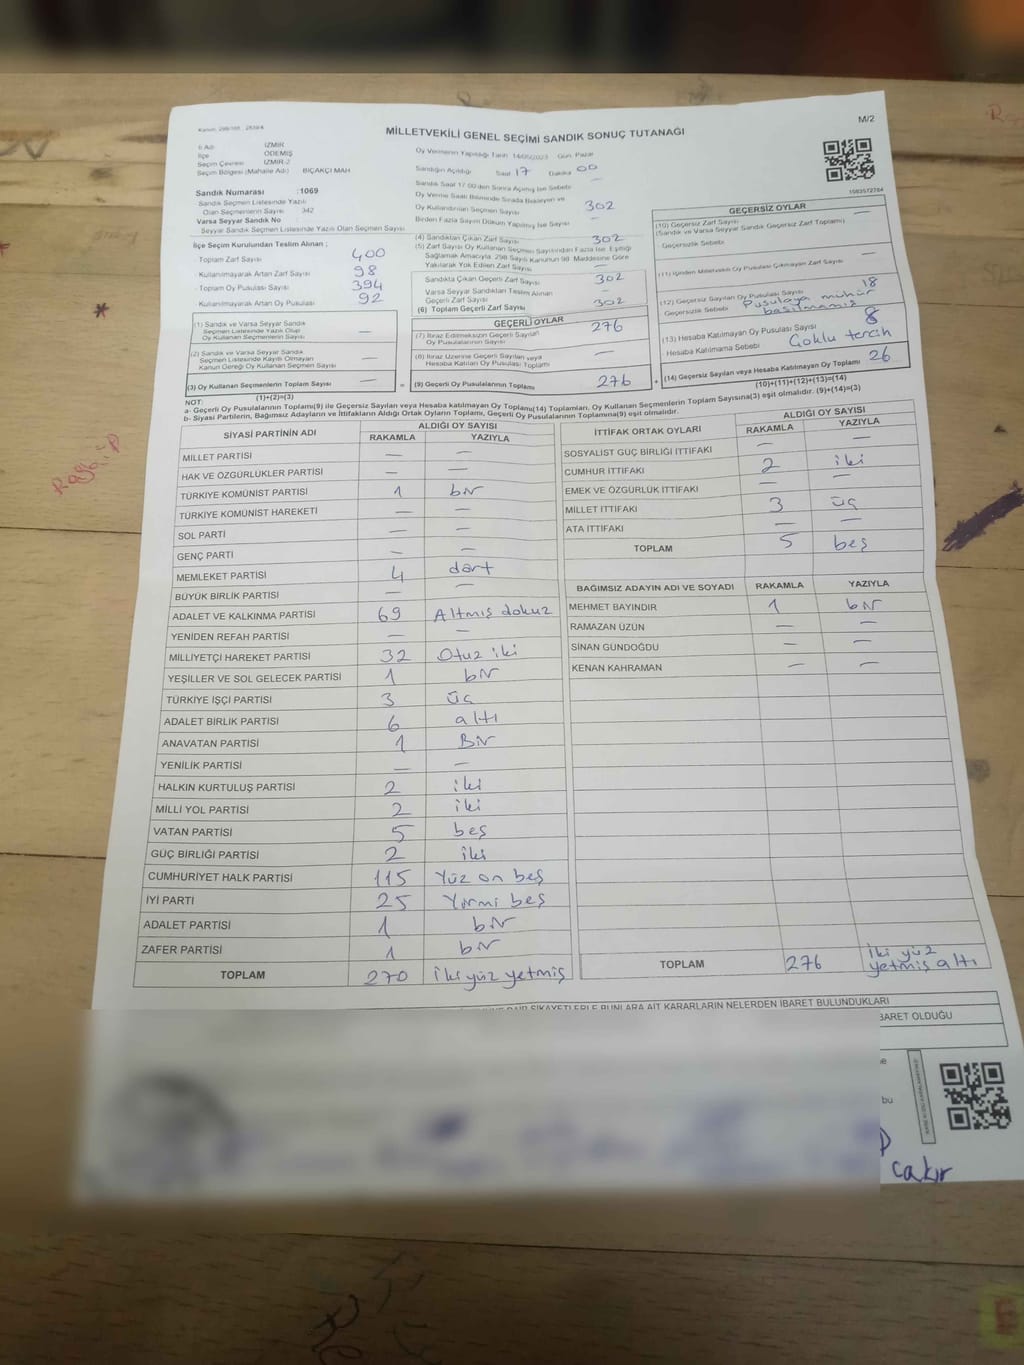 M/2
MİLLETVEKİLİ GENEL SEÇİMİ SANDIK SONUÇ TUTANAĞI
İl Adı İZMİR
İlçe ÖDEMİŞ
Seçim Çevresi İZMİR-2
Seçim Bölgesi (Mahalle Adı) BIÇAKÇI MAH
Sandık Numarası :1069
Sandık Seçmen Listesinde Yazılı
Olan Seçmenlerin Sayısı 342
Varsa Seyyar Sandık No
Seyyar Sandık Seçmen Listesinde Yazılı Olan Seçmen Sayısı
İlçe Seçim Kurulundan Teslim Alınan ;
Toplam Zarf Sayısı 400
Kullanılmayarak Artan Zarf Sayısı 98
Toplam Oy Pusulası Sayısı 394
Kullanılmayarak Artan Oy Pusulası 92
(1) Sandık ve Varsa Seyyar Sandık
Seçmen Listesinde Yazılı Olup
Oy Kullanan Seçmenlerin Sayısı —
(2) Sandık ve Varsa Seyyar Sandık
Seçmen Listesinde Kayıtlı Olmayan
Kanun Gereği Oy Kullanan Seçmen Sayısı —
(3) Oy Kullanan Seçmenlerin Toplam Sayısı —
(1)+(2)=(3)
Oy Vermenin Yapıldığı Tarih 14/05/2023 Gün Pazar
Sandığın Açıldığı Saat 17 Dakika 00
Sandık Saat 17:00'den Sonra Açılmış İse Sebebi —
Oy Verme Saati Bitiminde Sırada Bekleyen ve
Oy Kullandırılan Seçmen Sayısı 302
Birden Fazla Sayım Döküm Yapılmış İse Sayısı —
(4) Sandıktan Çıkan Zarf Sayısı 302
(5) Zarf Sayısı Oy Kullanan Seçmen Sayısından Fazla İse, Eşitliği
Sağlamak Amacıyla, 298 Sayılı Kanunun 98. Maddesine Göre
Yakılarak Yok Edilen Zarf Sayısı —
Sandıkta Çıkan Geçerli Zarf Sayısı 302
Varsa Seyyar Sandıktan Teslim Alınan
Geçerli Zarf Sayısı —
(6) Toplam Geçerli Zarf Sayısı 302
GEÇERLİ OYLAR
(7) İtiraz Edilmeksizin Geçerli Sayılan
Oy Pusulalarının Sayısı 276
(8) İtiraz Üzerine Geçerli Sayılan veya
Hesaba Katılan Oy Pusulası Toplamı —
= (9) Geçerli Oy Pusulalarının Toplamı 276 +
1083572784
GEÇERSİZ OYLAR
(10) Geçersiz Zarf Sayısı —
(Sandık ve Varsa Seyyar Sandık Geçersiz Zarf Toplamı)
Geçersizlik Sebebi
(11) İçinden Milletvekili Oy Pusulası Çıkmayan Zarf Sayısı —
(12) Geçersiz Sayılan Oy Pusulası Sayısı 18
Geçersizlik Sebebi Pusulaya mühür basılmamış
(13) Hesaba Katılmayan Oy Pusulası Sayısı 8
Hesaba Katılmama Sebebi Çoklu tercih
(14) Geçersiz Sayılan veya Hesaba Katılmayan Oy Toplamı 26
(10)+(11)+(12)+(13)=(14)
NOT:
a- Geçerli Oy Pusulalarının Toplamı(9) ile Geçersiz Sayılan veya Hesaba katılmayan Oy Toplamı(14) Toplamları, Oy Kullanan Seçmenlerin Toplam Sayısına(3) eşit olmalıdır. (9)+(14)=(3)
b- Siyasi Partilerin, Bağımsız Adayların ve İttifakların Aldığı Ortak Oyların Toplamı, Geçerli Oy Pusulalarının Toplamına(9) eşit olmalıdır.
SİYASİ PARTİNİN ADI ALDIĞI OY SAYISI
RAKAMLA YAZIYLA
MİLLET PARTİSİ — —
HAK VE ÖZGÜRLÜKLER PARTİSİ — —
TÜRKİYE KOMÜNİST PARTİSİ 1 bir
TÜRKİYE KOMÜNİST HAREKETİ — —
SOL PARTİ — —
GENÇ PARTİ — —
MEMLEKET PARTİSİ 4 dört
BÜYÜK BİRLİK PARTİSİ — —
ADALET VE KALKINMA PARTİSİ 69 Altmış dokuz
YENİDEN REFAH PARTİSİ — —
MİLLİYETÇİ HAREKET PARTİSİ 32 Otuz iki
YEŞİLLER VE SOL GELECEK PARTİSİ 1 bir
TÜRKİYE İŞÇİ PARTİSİ 3 üç
ADALET BİRLİK PARTİSİ 6 altı
ANAVATAN PARTİSİ 1 Bir
YENİLİK PARTİSİ — —
HALKIN KURTULUŞ PARTİSİ 2 iki
MİLLİ YOL PARTİSİ 2 iki
VATAN PARTİSİ 5 beş
GÜÇ BİRLİĞİ PARTİSİ 2 iki
CUMHURİYET HALK PARTİSİ 115 Yüz on beş
İYİ PARTİ 25 Yirmi beş
ADALET PARTİSİ 1 bir
ZAFER PARTİSİ 1 bir
TOPLAM 270 İki yüz yetmiş
İTTİFAK ORTAK OYLARI ALDIĞI OY SAYISI
RAKAMLA YAZIYLA
SOSYALİST GÜÇ BİRLİĞİ İTTİFAKI — —
CUMHUR İTTİFAKI 2 iki
EMEK VE ÖZGÜRLÜK İTTİFAKI — —
MİLLET İTTİFAKI 3 üç
ATA İTTİFAKI — —
TOPLAM 5 beş
BAĞIMSIZ ADAYIN ADI VE SOYADI RAKAMLA YAZIYLA
MEHMET BAYINDIR 1 bir
RAMAZAN UZUN — —
SİNAN GÜNDOĞDU — —
KENAN KAHRAMAN — —
TOPLAM 276 İki yüz yetmiş altı
ŞİKAYETLERLE BUNLARA AİT KARARLARIN NELERDEN İBARET BULUNDUKLARI
BARET OLDUĞU
bu
cakır